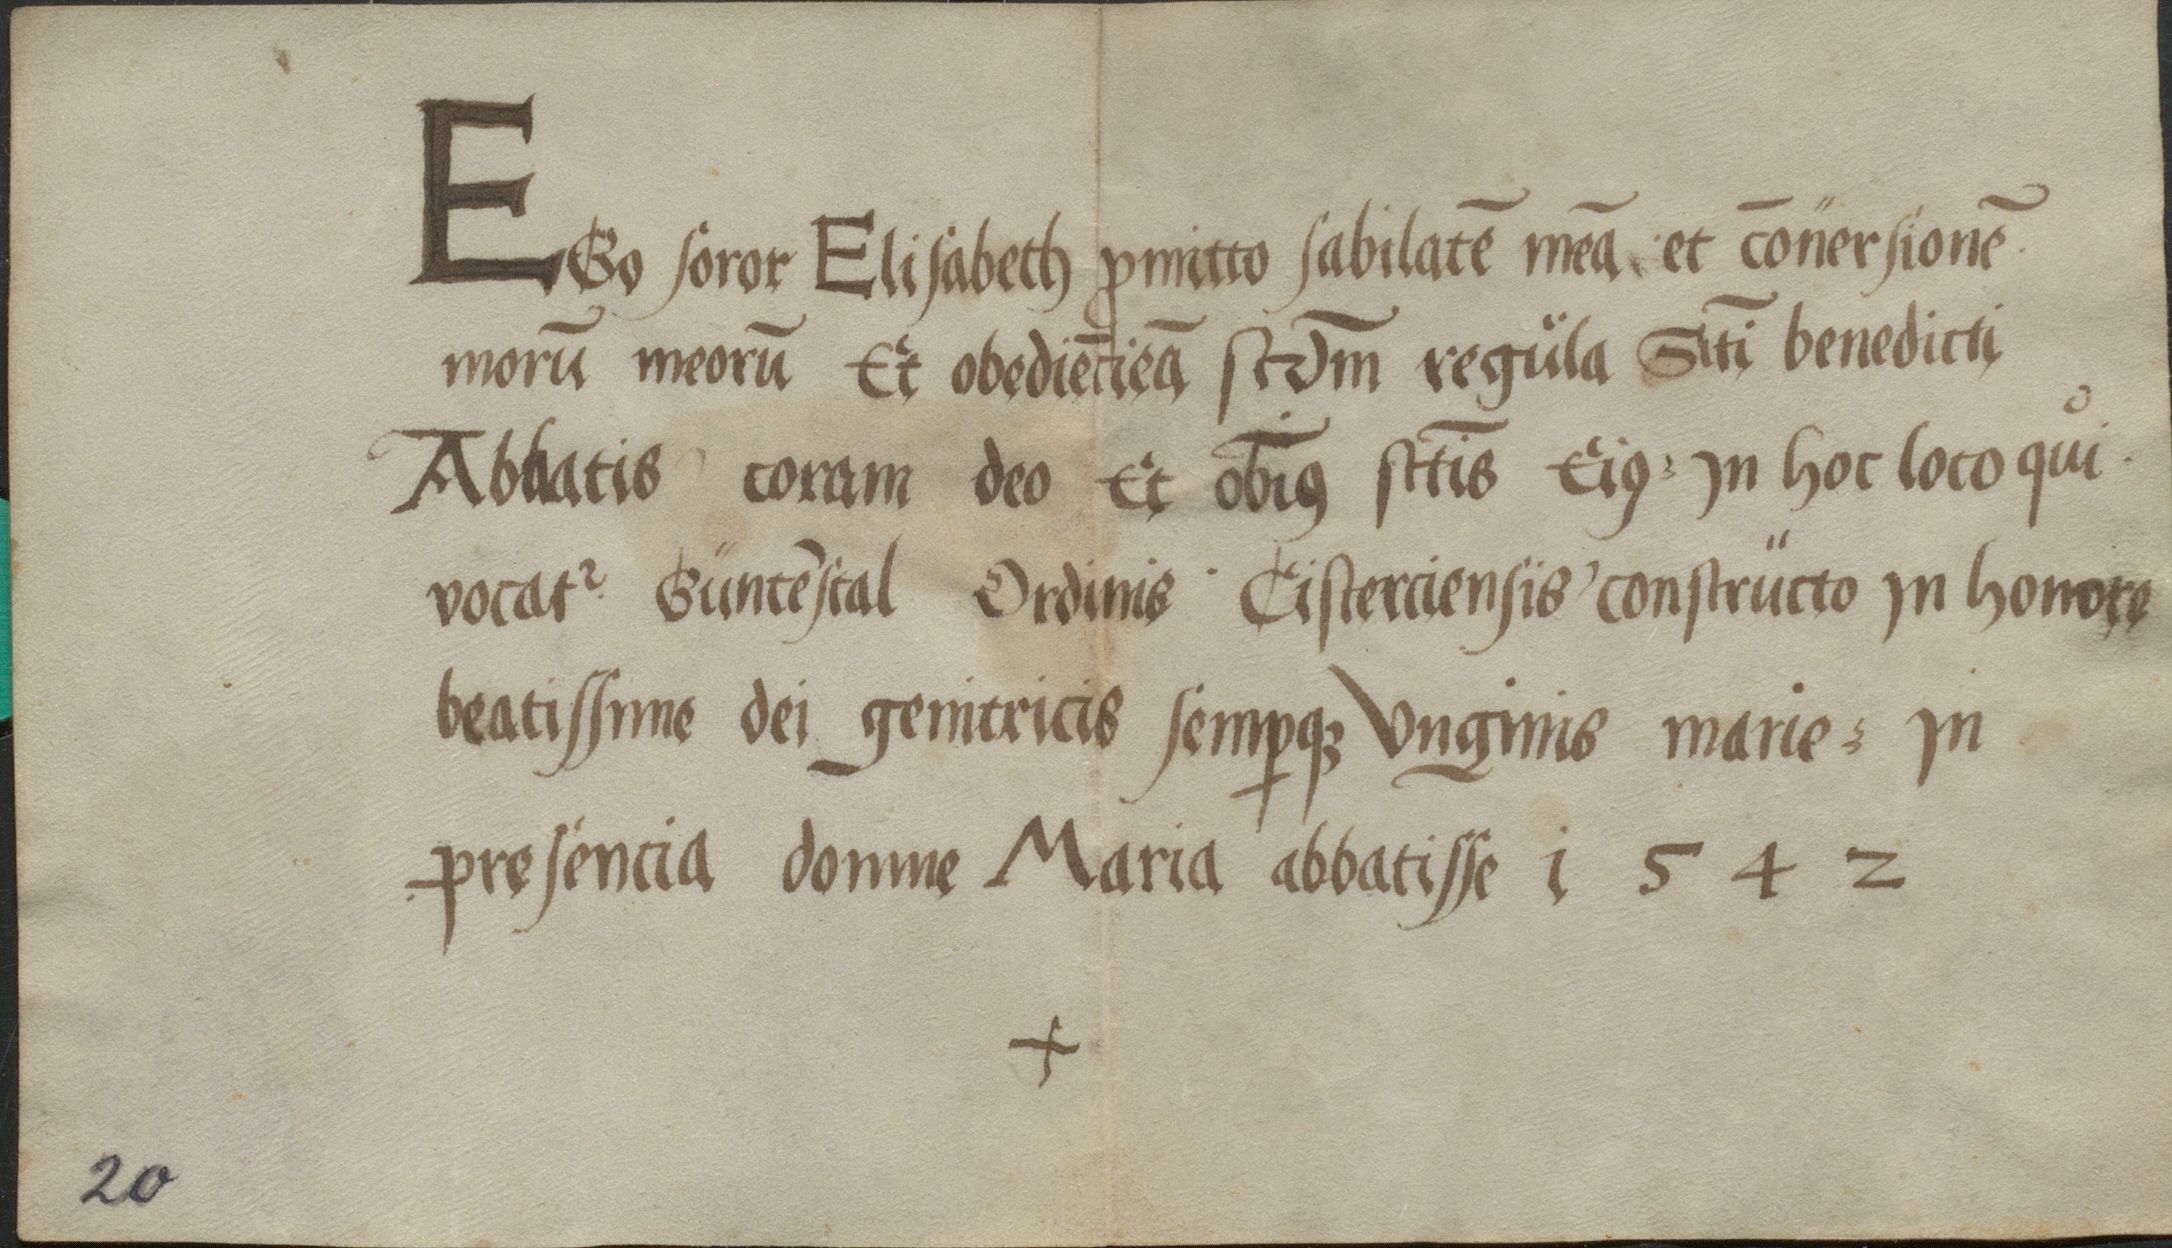 EGo soror Elisabeth ꝓmitto sabilatē meā et cōuersionē
morū meorū Et obediēcieā scdm̄ regula Scti̅ benedicti
Abbatis coram deo Et ob̅ꝰ sct̅is Eiꝰ: in hoc loco qui
vocatᷣ Guntēstal Ordinis Cisterciensis constructo in honore
beatissime dei genitricis semꝑqꝫ virginis marie: in
presencia domine Maria abbatisse i 5 4 2
+
20